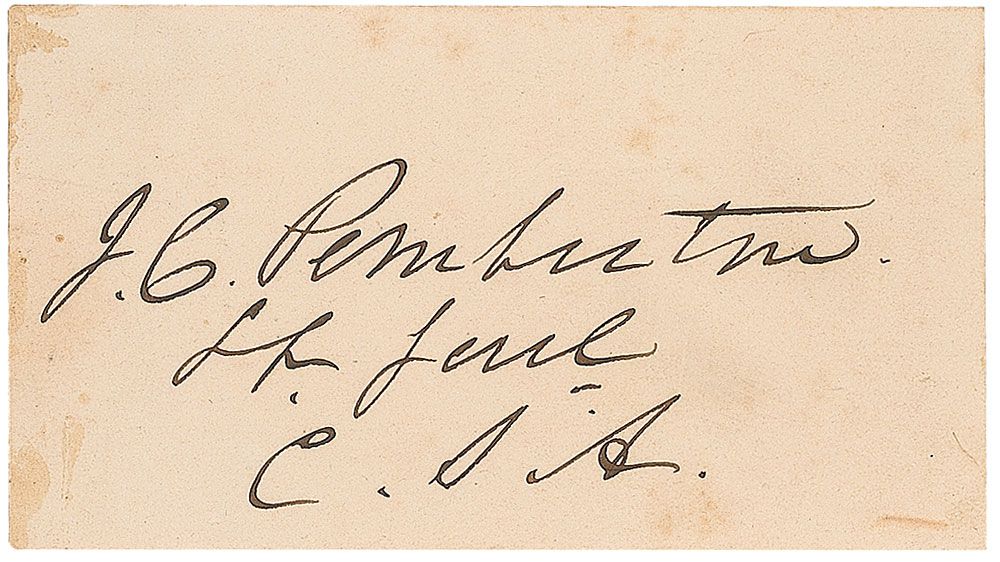 J. C. Pemberton.
Lt. Genl
C. S. A.